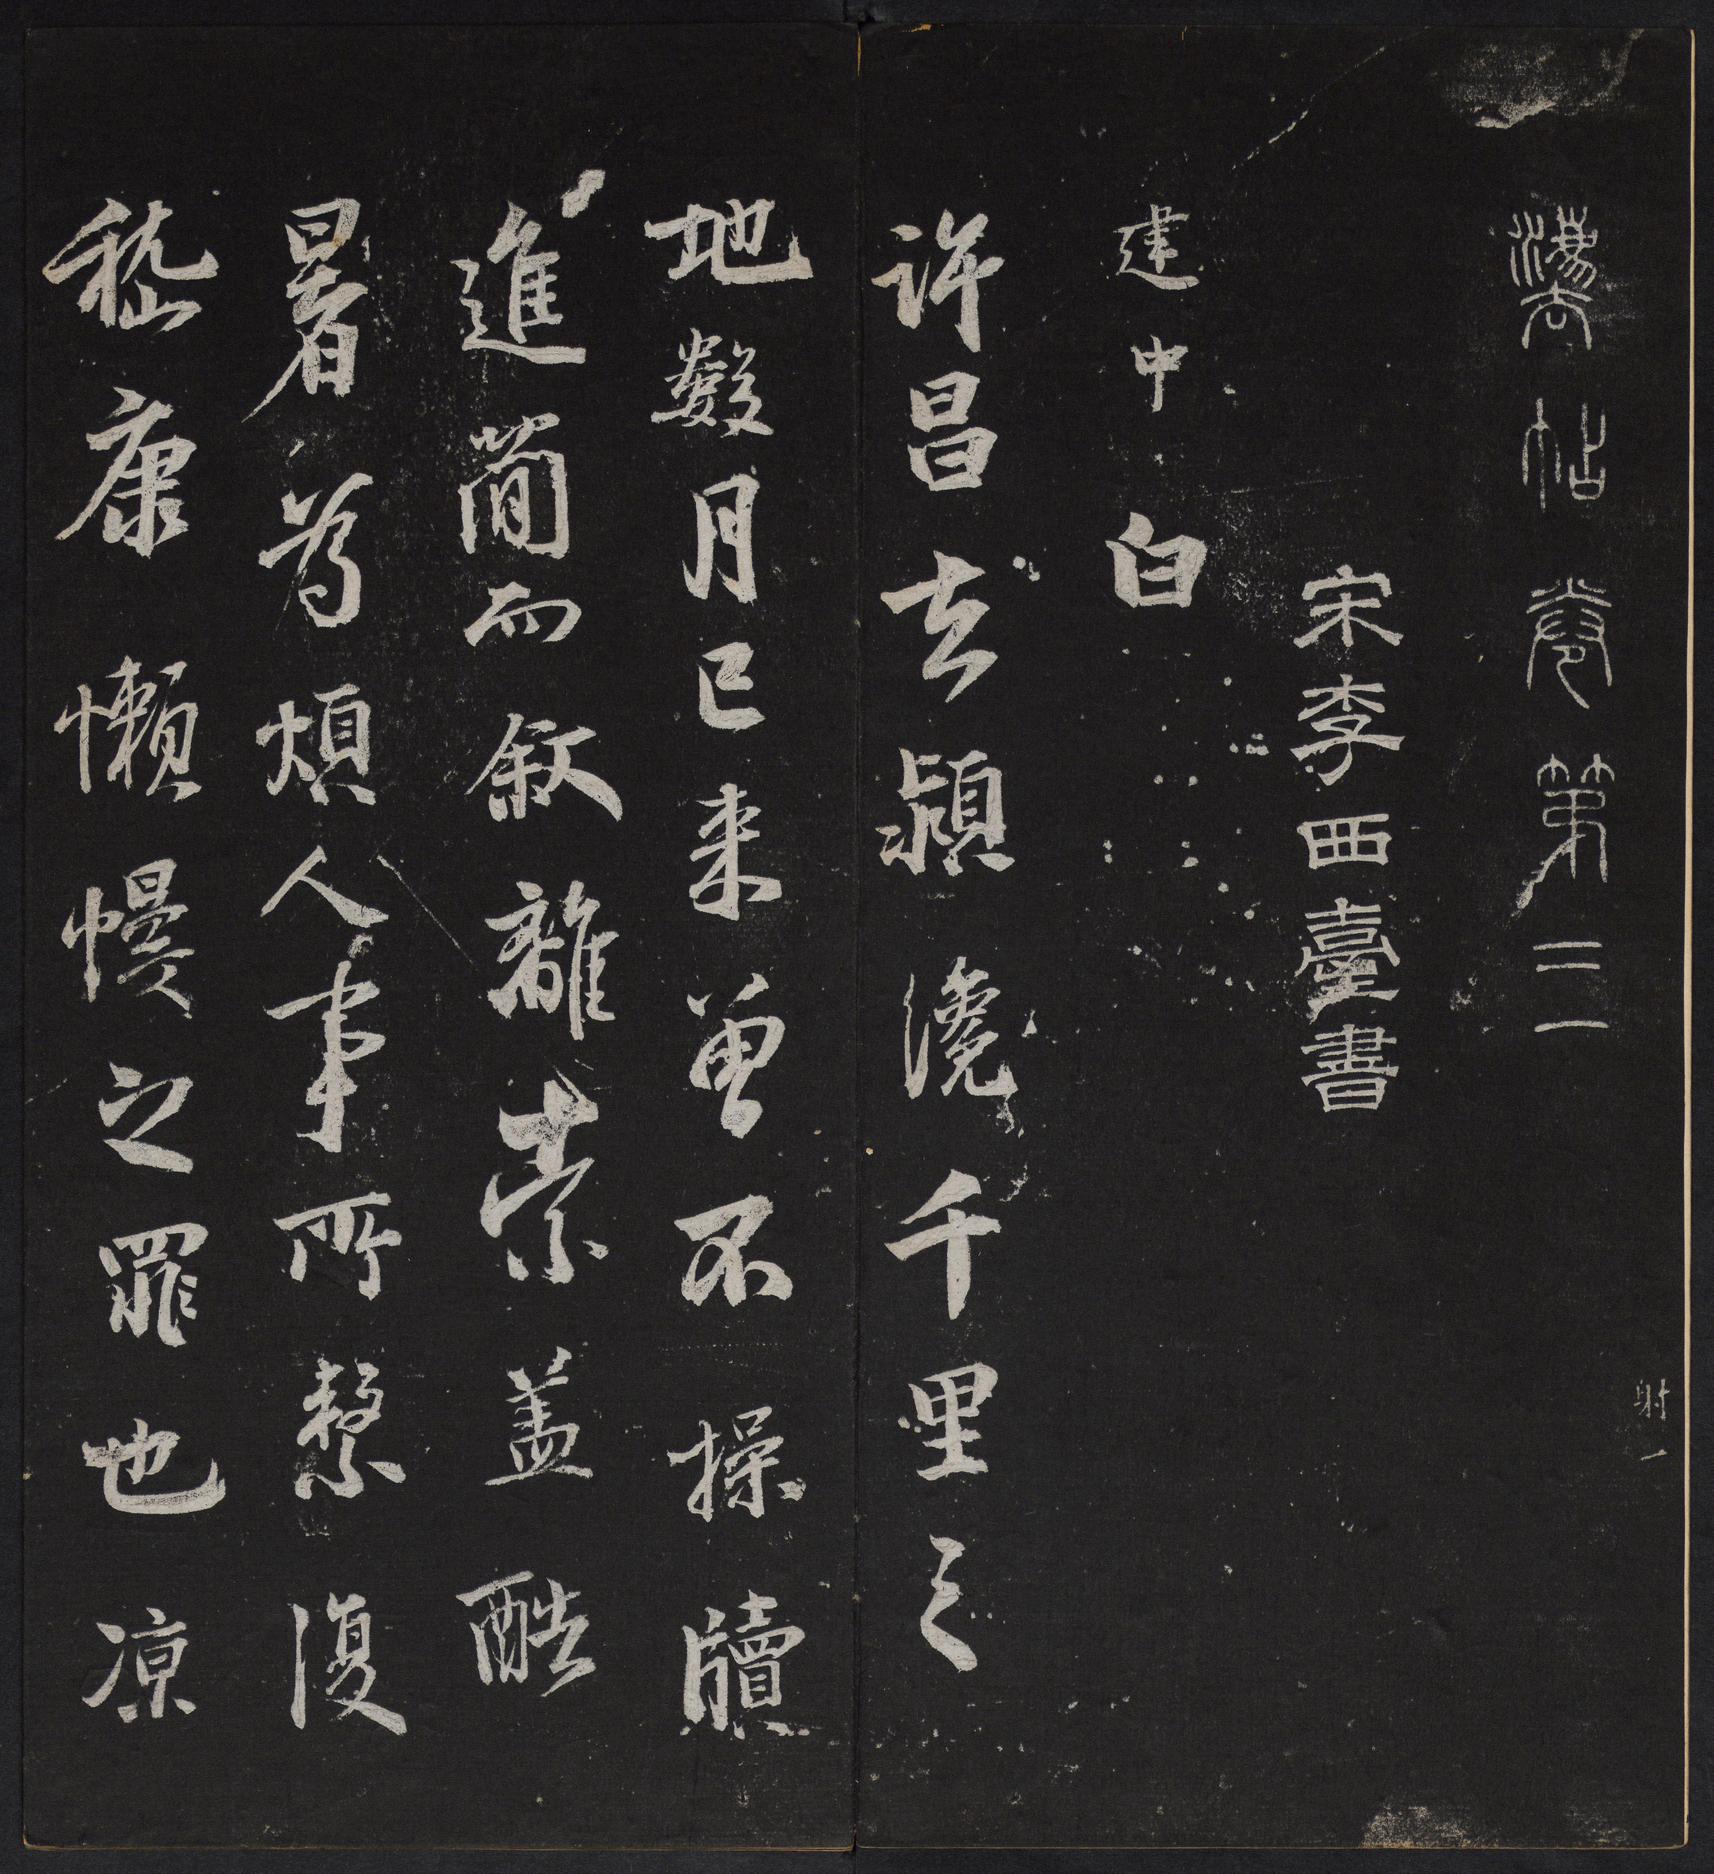 射一
灋帖卷第三
宋李西臺書
建中白
許昌去潁澆千里之
地數月已来曽不操牘
進簡而叙離索盖酷
暑爲煩人事所繫復
嵇康懶慢之罪也凉